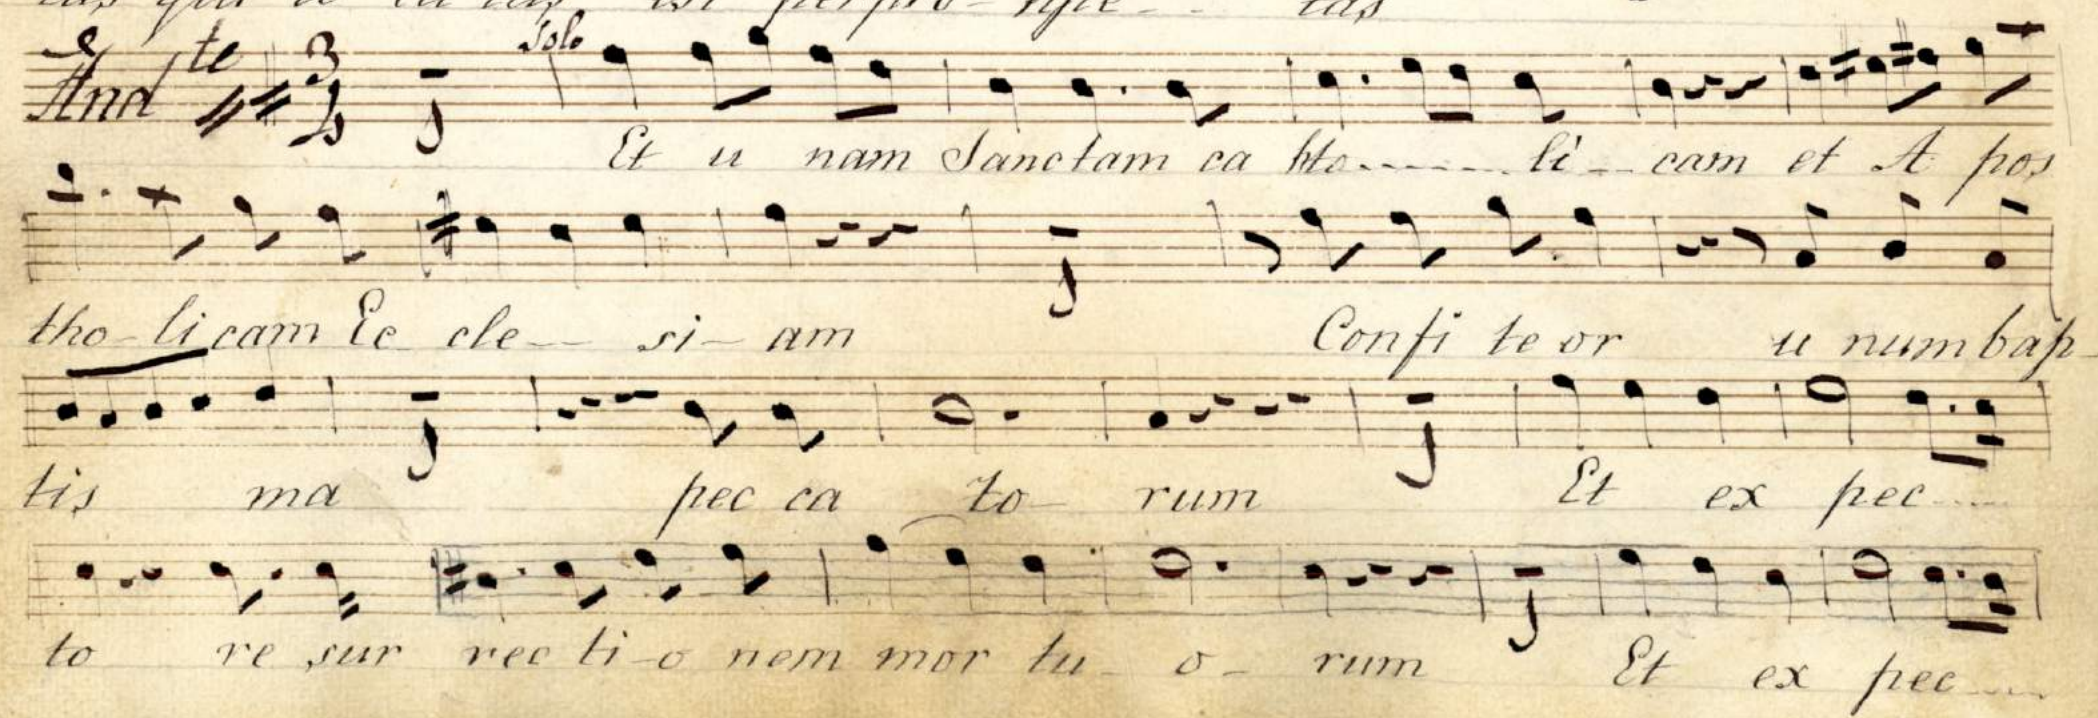 And te 3 4 1 Solo
Et u nam Sanctam ca tto li cam et A pos
tho li cam Ec cle si am 1 Confi te or u num bap
tis ma 1 pec ca to rum 1 Et ex pec
to re sur rec ti o nem mor tu o rum 1 Et ex pec